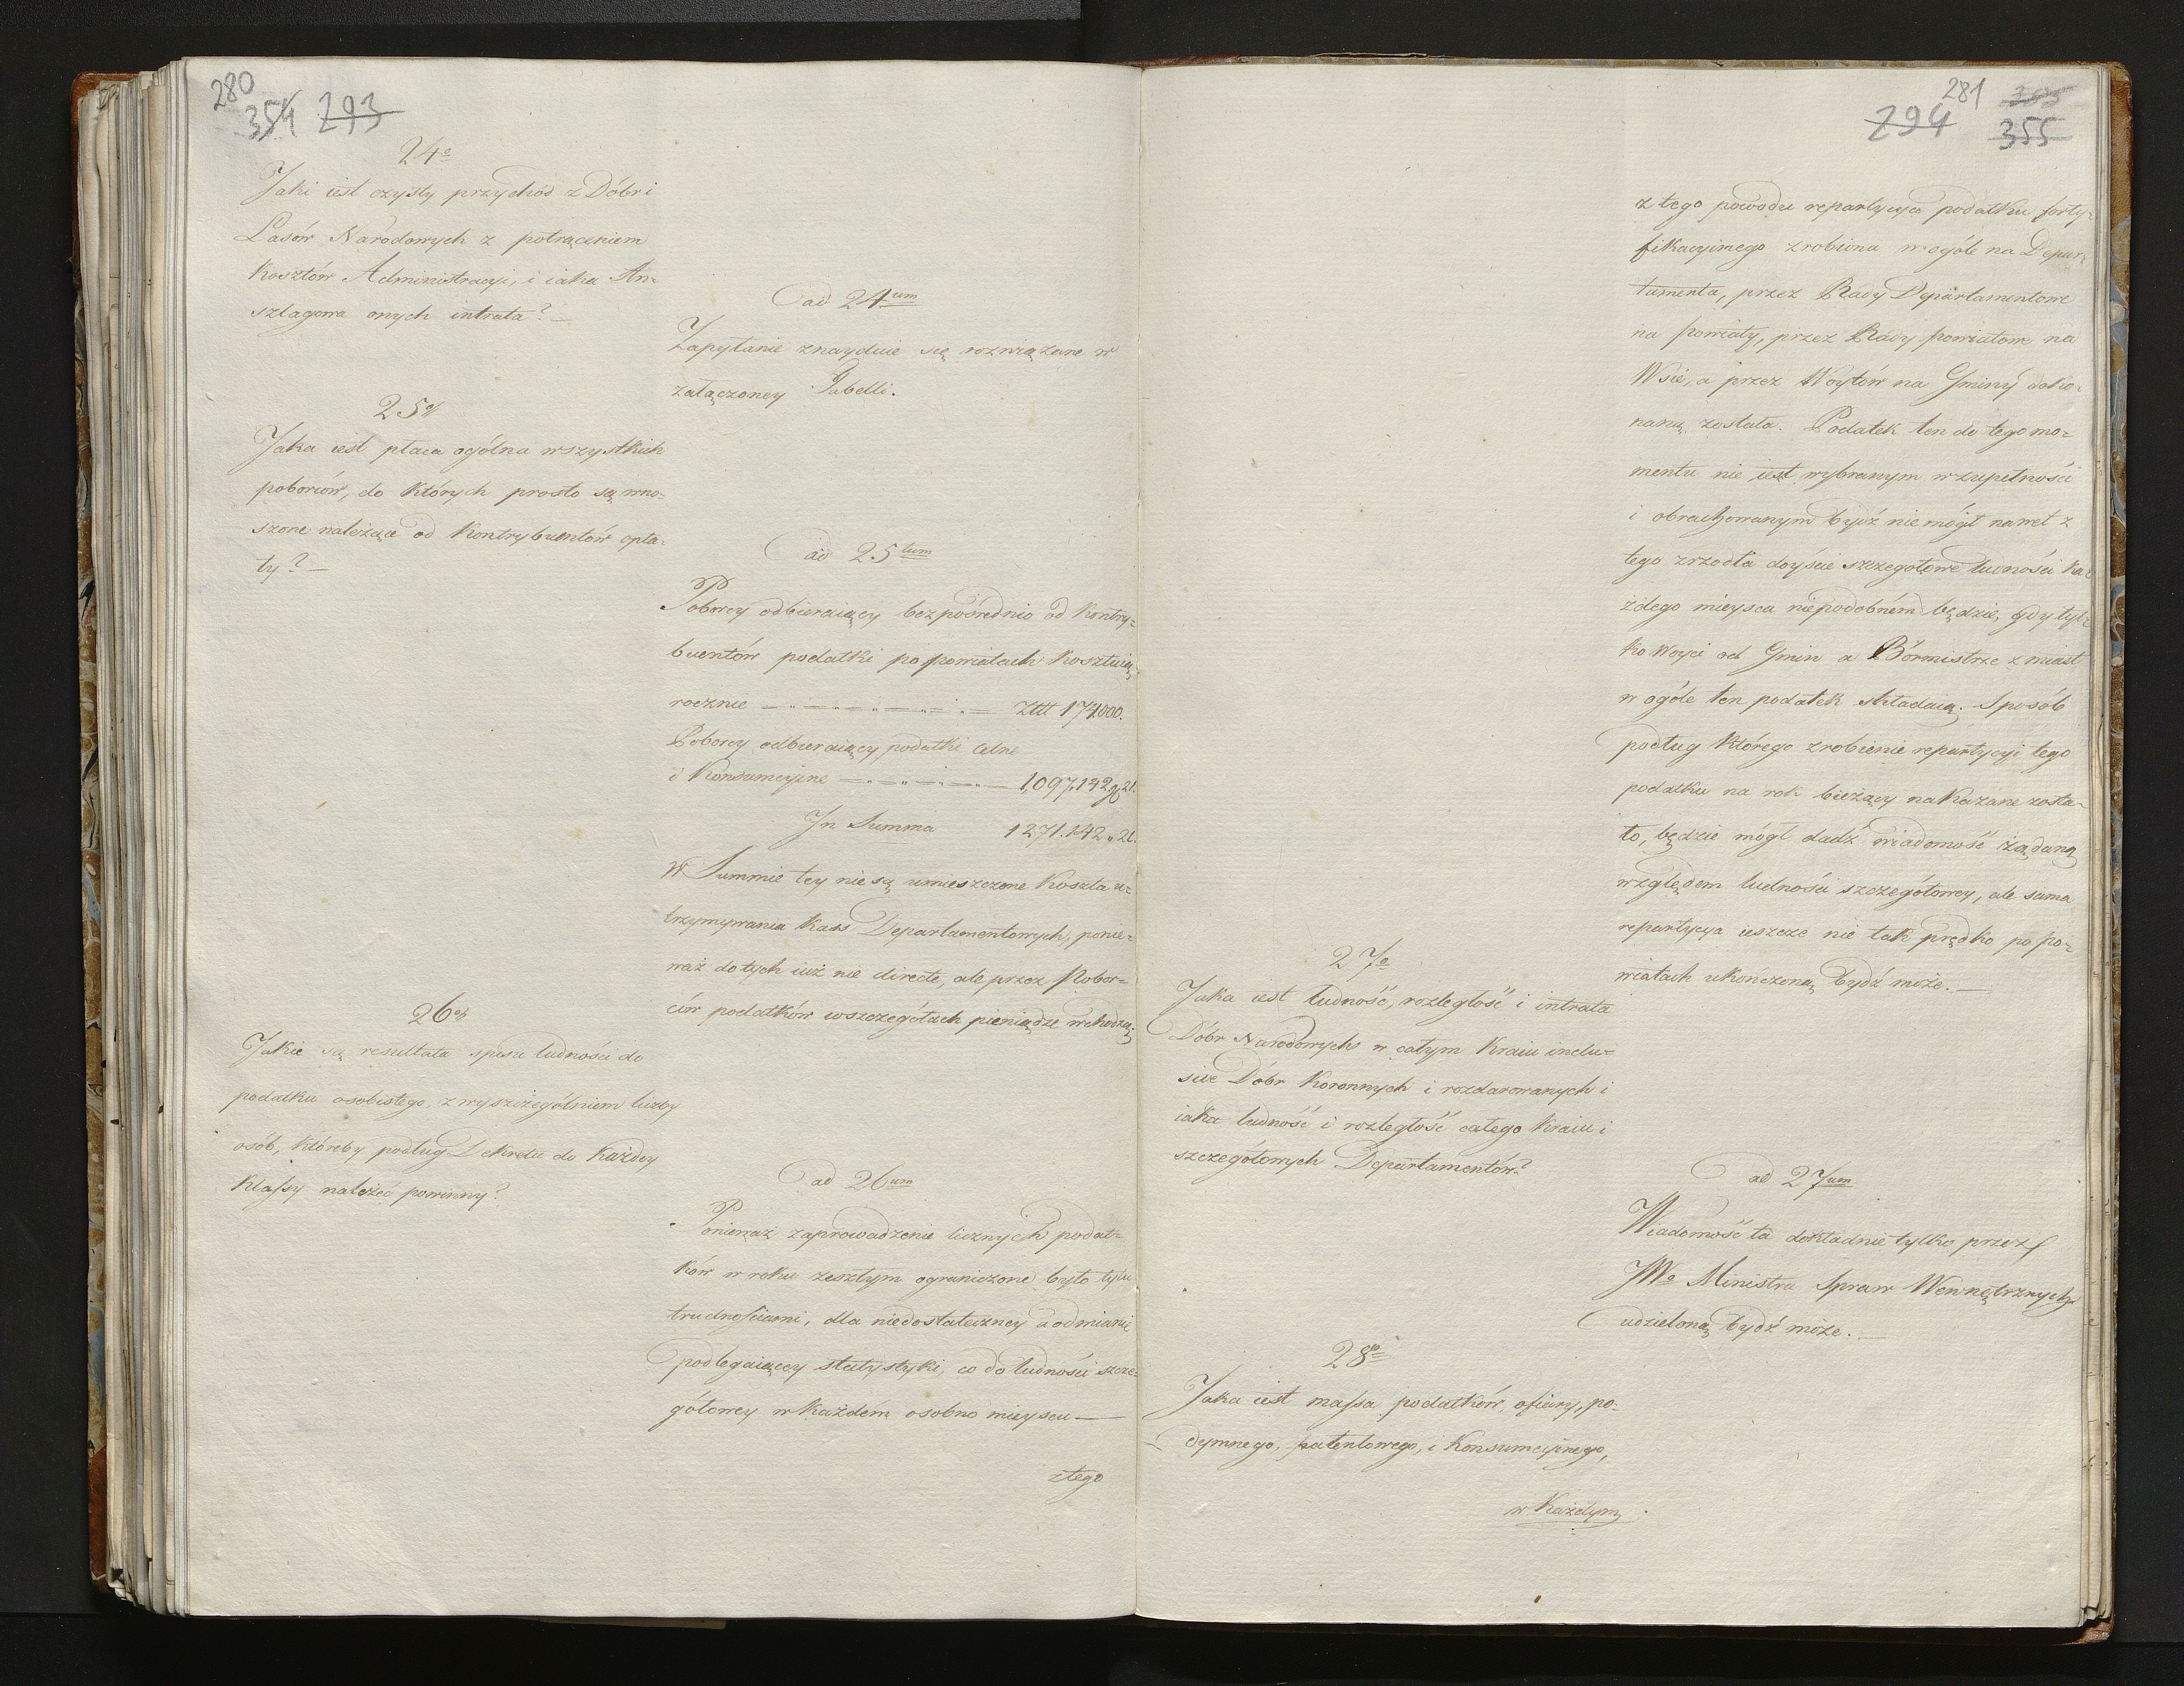 280
354 293
24o
Jaki iest czysty przychód z Dóbr i
Lasów Narodowych z potrąceniem
Kosztów Administracyi, i iaka An=
szlagowa onych intrata? —
ad 24um
Zapytanie znayduie się rozwiązane w
załączoney Tabelli.
25o
Jaka iest płaca ogólna wszystkich
poborców, do których prosto są wno=
szone należące od Kontrybuentów opła=
ty? —
ad 25tum
Poborcy odbieraiący bezpośrednio od Kontry=
buentów podatki po powiatach Kosztuią
rocznie — Złtt 174000.
Poborcy odbieraiący podatki Celne
i Konsumcyine — 1,097,142 g 21.
Jn Summa 1271.142 „ 21.
W Summie tey nie są umieszczone Koszta u=
trzymywania Kass Departamentowych, ponie=
waż do tych iuż nie directe, ale przez Pobor=
ców podatków wszczegółach pieniądze wchodzą.
26o
Jakie są resultata spisu ludności do
podatku osobistego, z wyszczególniem liczby
osób, któreby podług Dekretu do każdey
Klassy należeć powinny?
ad 26um
Ponieważ zaprowadzenie licznych podat=
ków w roku zeszłym ograniczone było tylu
trudnościami, dla niedostateczney a odmianie
podlegaiącey statystyki, co do ludności szcze=
gółowey w każdém osobno mieyscu —
z tego
281 353
294 355
z tego powodu repartycya podatku forty=
fikacyinego zrobiona w ogóle na Depar=
tamenta, przez Rady Departamentowe
na powiaty, przez Rady powiatowe na
Wsie, a przez Woytów na Gminy doko=
naną została. Podatek ten do tego mo=
mentu nie iest wybranym w zupełności
i obrachowanym bydź nie mógł nawet z
tego zrzodła doyście szczegółowe ludności ka=
żdego mieysca niepodobném będzie, gdy tyl=
ko Woyci od Gmin a Bórmistrze z miast
w ogóle ten podatek składaią. Sposób
podług którego zrobienie repartycyi tego
podatku na rok bieżący nakazane zosta=
ło, będzie mógł dadź wiadomość żądaną
względem ludności szczegółowey, ale sama
repartycya ieszcze nie tak prędko po po=
wiatach ukończoną bydź może. —
27o
Jaka iest ludność, rozległość i intrata
Dóbr Narodowych w całym Kraiu inclu=
sive Dóbr Koronnych i rozdarowanych i
iaka ludność i rozległość całego Kraiu i
szczegółowych Departamentów?
ad 27um
Wiadomość ta dokładnie tylko przez
JWo Ministra Spraw Wewnętrznych
udzieloną bydź może. —
28o
Jaka iest massa podatków, ofiary, po=
dymnego, patentowego, i Konsumcyinego,
w Każdym